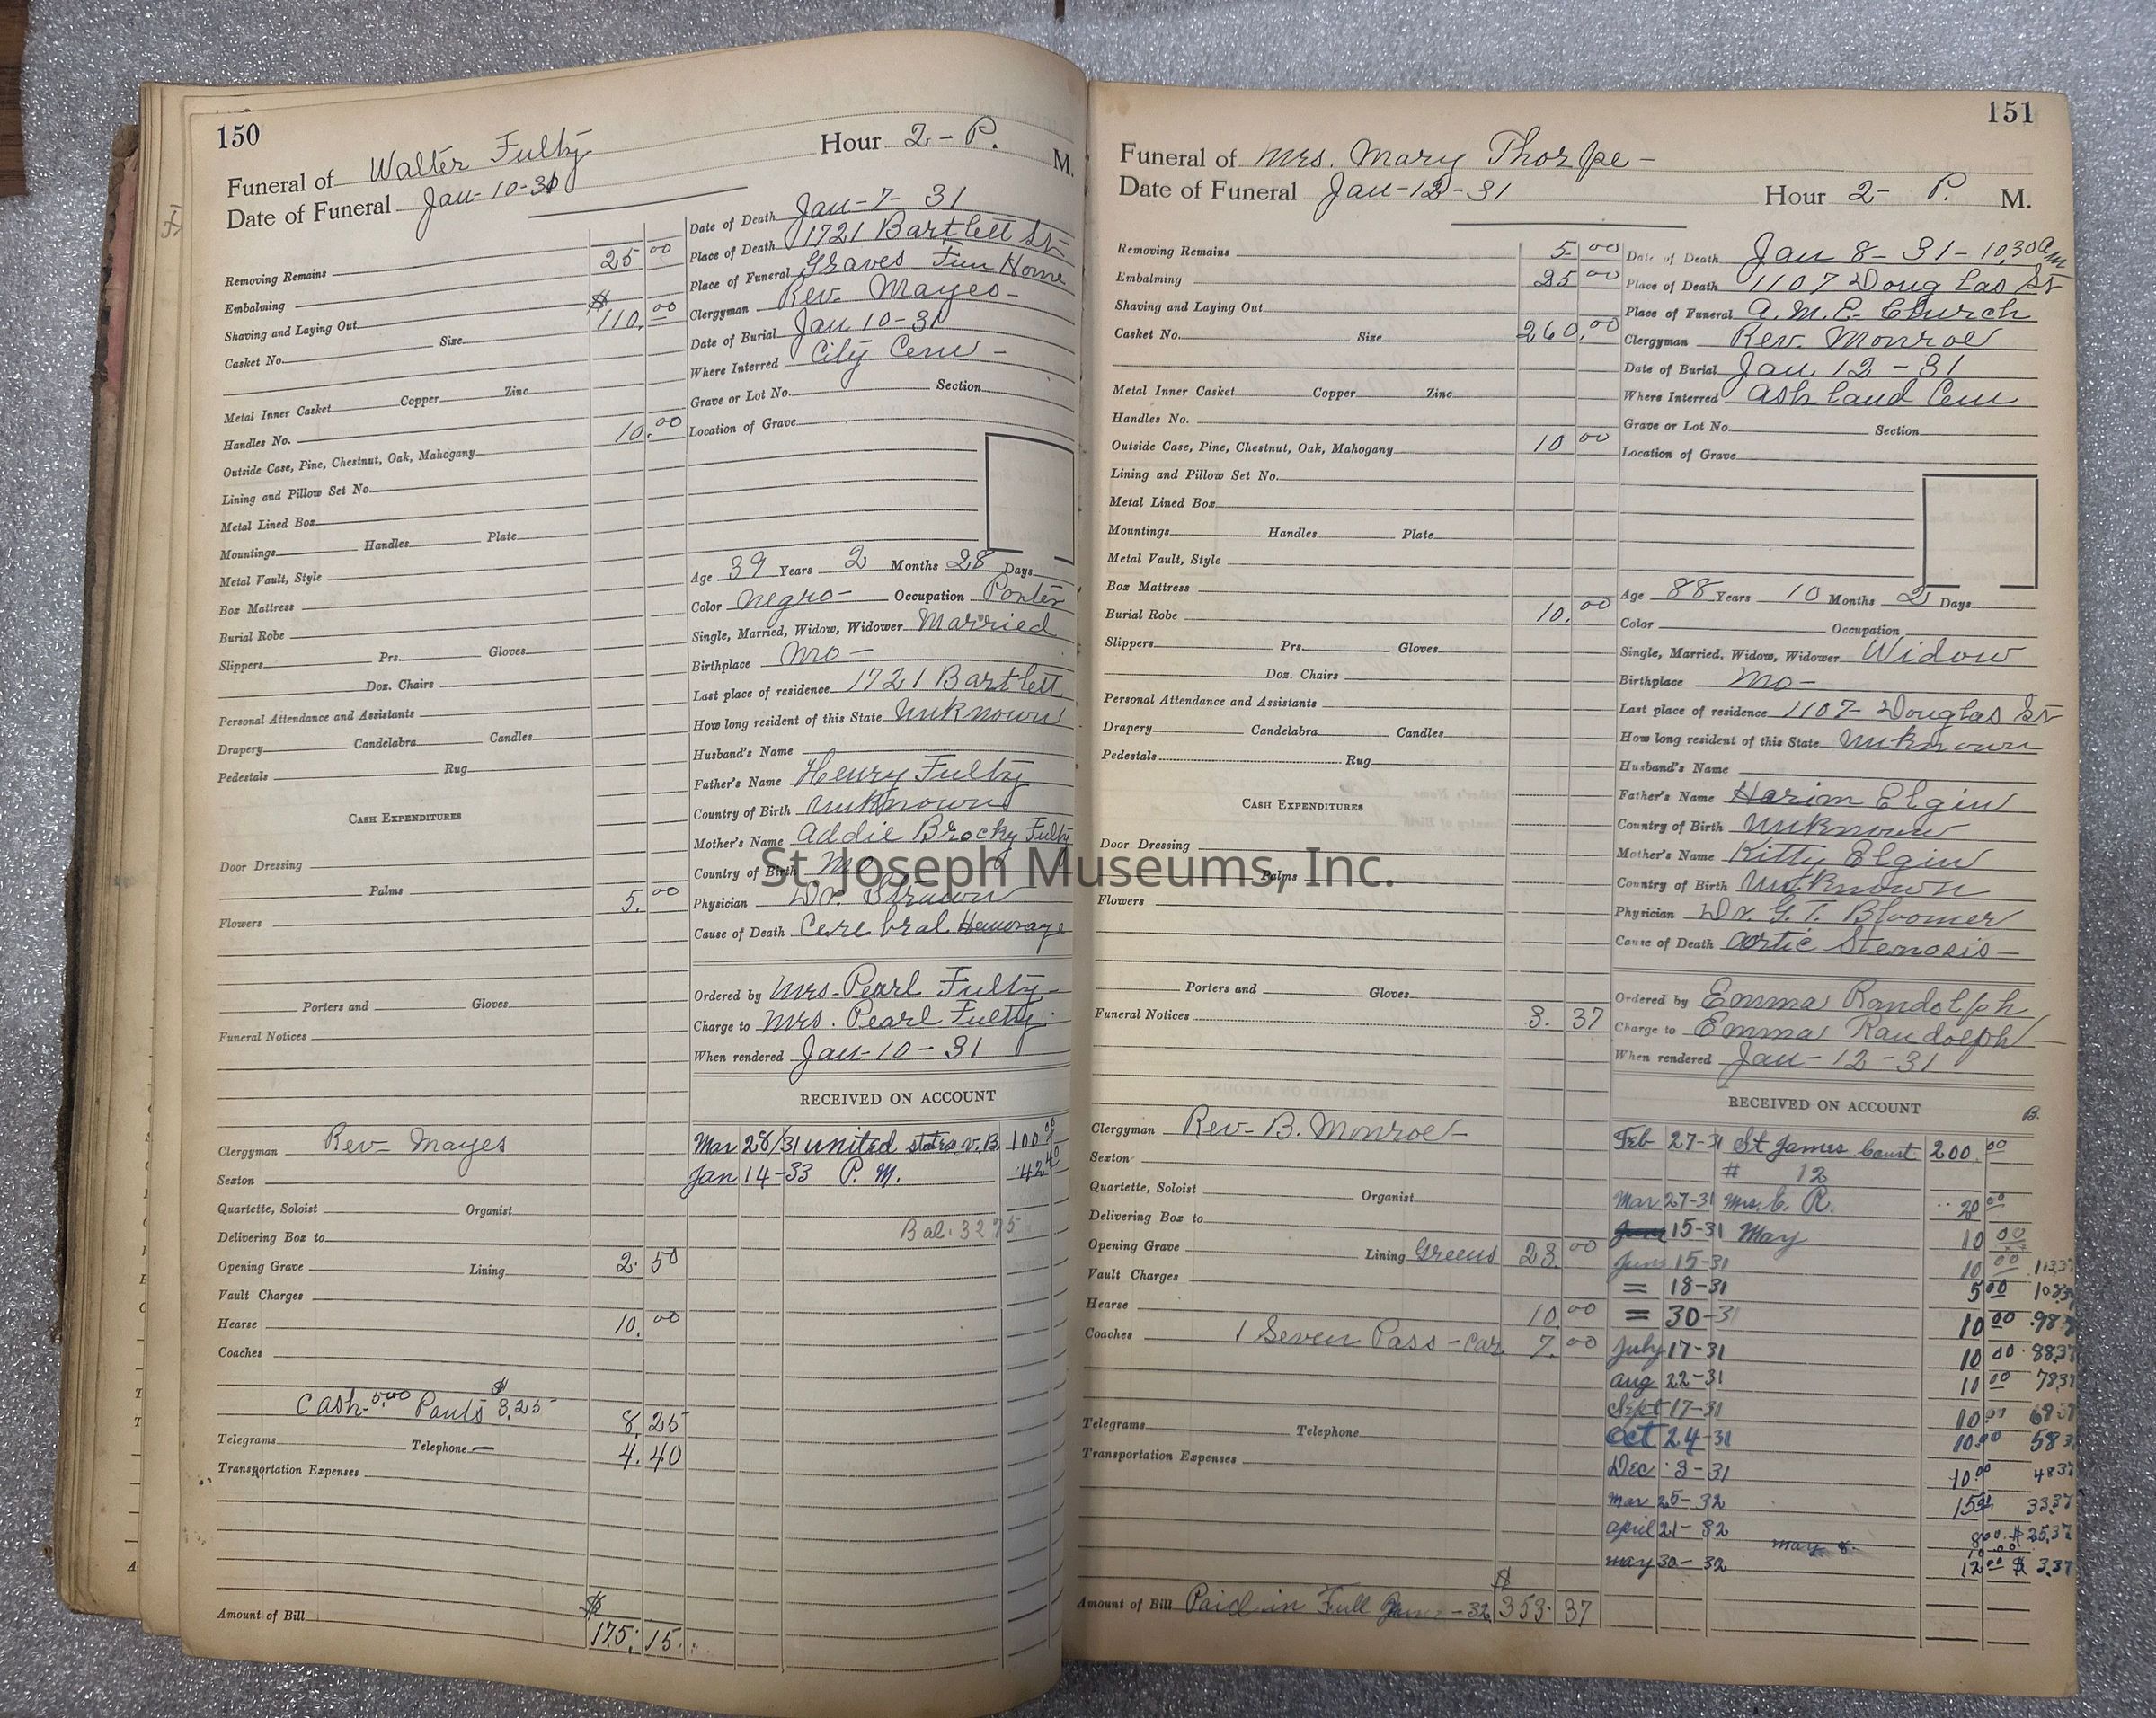 150
Funeral of Walter Fulty Hour 2- P. M.
Date of Funeral Jan-10-31
Removing Remains
Embalming 25 00
Shaving and Laying Out
Casket No. Size $110.00
Metal Inner Casket Copper Zinc
Handles No.
Outside Case, Pine, Chestnut, Oak, Mahogany 10.00
Lining and Pillow Set No.
Metal Lined Box
Mountings Handles Plate
Metal Vault, Style
Box Mattress
Burial Robe
Slippers Prs. Gloves
Doz. Chairs
Personal Attendance and Assistants
Drapery Candelabra Candles
Pedestals Rug
CASH EXPENDITURES
Door Dressing
Palms
Flowers 5.00
Porters and Gloves
Funeral Notices
Clergyman Rev- Mayes
Sexton
Quartette, Soloist Organist
Delivering Box to
Opening Grave Lining 2.50
Vault Charges
Hearse 10.00
Coaches
Cash-5.00 Pants $3.25 8.25
Telegrams Telephone 4.40
Transportation Expenses
Amount of Bill $175.15
Date of Death Jan-7-31
Place of Death 1721 Bartlett St-
Place of Funeral Graves Fun Home
Clergyman Rev. Mayes-
Date of Burial Jan 10-31
Where Interred City Cem-
Grave or Lot No. Section
Location of Grave
Age 39 Years 2 Months 28 Days
Color Negro- Occupation Porter
Single, Married, Widow, Widower Married
Birthplace Mo-
Last place of residence 1721 Bartlett
How long resident of this State Unknown
Husband's Name
Father's Name Henry Fulty
Country of Birth Unknown
Mother's Name Addie Brocky Fulty
Country of Birth Mo
Physician Dr.
Cause of Death Cerebral Hemorage
Ordered by Mrs- Pearl Fulty-
Charge to Mrs. Pearl Fulty.
When rendered Jan-10-31
RECEIVED ON ACCOUNT
Mar 28/31 United States v.B. 100 00
Jan 14-33 P. M. 42 40
Bal. 32 75
151
Funeral of Mrs. Mary Thorpe-
Date of Funeral Jan-12-31 Hour 2- P. M.
Removing Remains 5.00
Embalming 25 00
Shaving and Laying Out
Casket No. Size 260.00
Metal Inner Casket Copper Zinc
Handles No.
Outside Case, Pine, Chestnut, Oak, Mahogany 10 00
Lining and Pillow Set No.
Metal Lined Box
Mountings Handles Plate
Metal Vault, Style
Box Mattress
Burial Robe 10.00
Slippers Prs. Gloves
Doz. Chairs
Personal Attendance and Assistants
Drapery Candelabra Candles
Pedestals Rug
CASH EXPENDITURES
Door Dressing
Palms
Flowers
Porters and Gloves
Funeral Notices 3.37
Clergyman Rev- B. Monroe-
Sexton
Quartette, Soloist Organist
Delivering Box to
Opening Grave Lining Greens 23.00
Vault Charges
Hearse 10.00
Coaches 1 Seven Pass-car 7.00
Telegrams Telephone
Transportation Expenses
Amount of Bill Paid in Full -32 $353.37
Date of Death Jan 8-31-10,30 am
Place of Death 1107 Douglas St
Place of Funeral A. M. E. Church
Clergyman Rev. Monroe
Date of Burial Jan 12-31
Where Interred Ashland Cem
Grave or Lot No. Section
Location of Grave
Age 88 Years 10 Months 2 Days
Color Occupation
Single, Married, Widow, Widower Widow
Birthplace Mo-
Last place of residence 1107- Douglas St
How long resident of this State Unknown
Husband's Name
Father's Name Harim Elgin
Country of Birth Unknown
Mother's Name Kitty Elgin
Country of Birth Unknown
Physician Dr. G. T. Bloomer
Cause of Death Aortic Stenosis-
Ordered by Emma Randolph
Charge to Emma Randolph
When rendered Jan-12-31
RECEIVED ON ACCOUNT B.
Feb 27-31 St James Court 200.00
# 12
Mar 27-31 Mrs. E. R. 20 00
June 15-31 May 10 00
June 15-31 10 00 113.37
= 18-31 5 00 108.37
= 30-31 10 00 98.37
July 17-31 10 00 88.37
Aug 22-31 10 00 78.37
Sept 17-31 10.00 68.37
Oct 24-31 10.00 58.37
Dec. 3-31 10.00 48.37
Mar 25-32 15 00 33.37
April 21-32 8.00 $25.37
May 8- 10.00
May 30-32 12 00 $3.37
St. Joseph Museums, Inc.